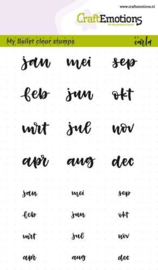 CraftEmotions
My Bullet clear stamps
carla
jan mei sep
feb jun okt
mrt jul nov
apr aug dec
jan mei sep
feb jun okt
mrt jul nov
apr aug dec